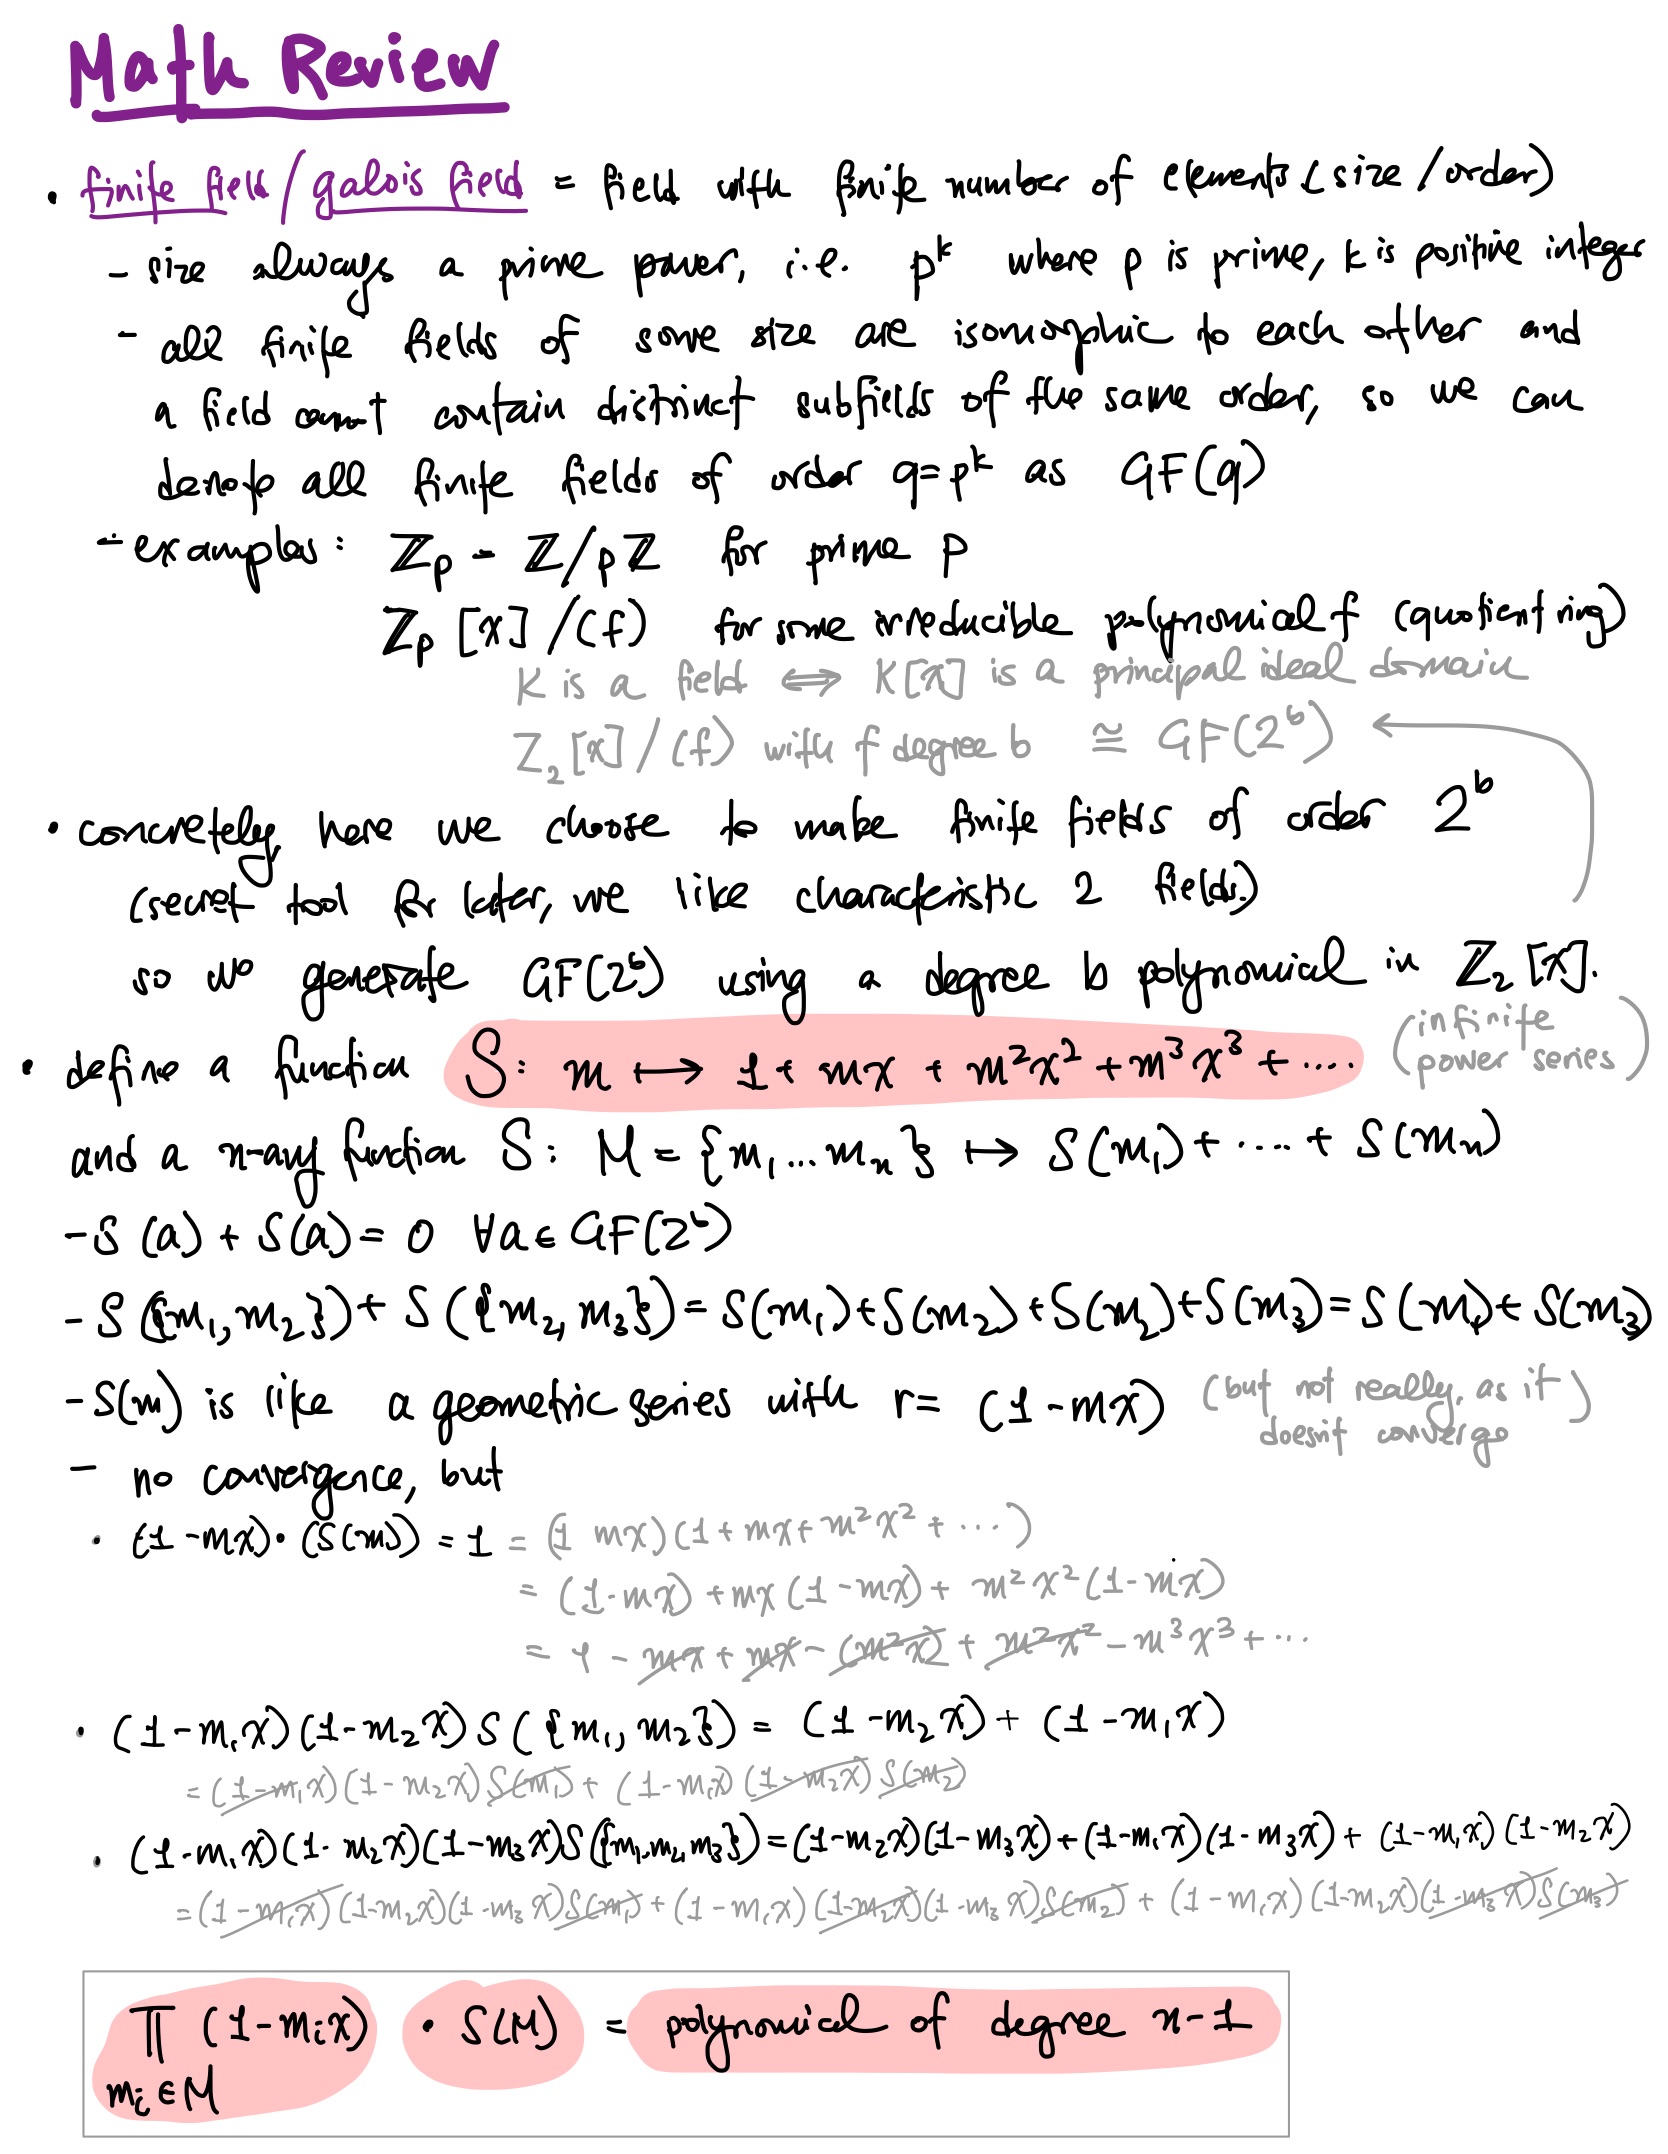 Math Review
• finite field / galois field = field with finite number of elements (size / order)
- size always a prime power, i.e. p^k where p is prime, k is positive integer
- all finite fields of same size are isomorphic to each other and
a field cannot contain distinct subfields of the same order, so we can
denote all finite fields of order q=p^k as GF(q)
- examples: ℤ_p - ℤ/pℤ for prime p
ℤ_p [x] /(f) for some irreducible polynomial f (quotient ring)
K is a field ⟺ K[x] is a principal ideal domain
Z_2 [x] / (f) with f degree b ≅ GF(2^b)
• concretely, here we choose to make finite fields of order 2^b
(secret tool for later, we like characteristic 2 fields.)
so we generate GF(2^b) using a degree b polynomial in ℤ_2 [x].
• define a function S: m ↦ 1 + mx + m^2x^2 + m^3x^3 + .... (infinite
power series)
and a n-ary function S: M = {m_1...m_n} ↦ S(m_1) + .... + S(m_n)
- S(a) + S(a) = 0 ∀a ∈ GF(2^b)
- S({m_1, m_2}) + S({m_2, m_3}) = S(m_1) + S(m_2) + S(m_2) + S(m_3) = S(m_1) + S(m_3)
- S(m) is like a geometric series with r = (1 - mx) (but not really, as it
doesn't converge)
- no convergence, but
• (1 - mx) · (S(m)) = 1 = (1 mx)(1 + mx + m^2x^2 + ...)
= (1 - mx) + mx (1 - mx) + m^2x^2 (1 - mx)
= 1 - mx + mx - (m^2x) + m^2x^2 - m^3x^3 + ...
• (1 - m_1x)(1 - m_2x) S({m_1, m_2}) = (1 - m_2x) + (1 - m_1x)
= (1 - m_1x)(1 - m_2x) S(m_1) + (1 - m_1x)(1 - m_2x) S(m_2)
• (1 - m_1x)(1 - m_2x)(1 - m_3x) S({m_1, m_2, m_3}) = (1 - m_2x)(1 - m_3x) + (1 - m_1x)(1 - m_3x) + (1 - m_1x)(1 - m_2x)
= (1 - m_1x)(1 - m_2x)(1 - m_3x) S(m_1) + (1 - m_1x)(1 - m_2x)(1 - m_3x) S(m_2) + (1 - m_1x)(1 - m_2x)(1 - m_3x) S(m_3)
∏ (1 - m_ix) · S(M) = polynomial of degree n-1
m_i ∈ M